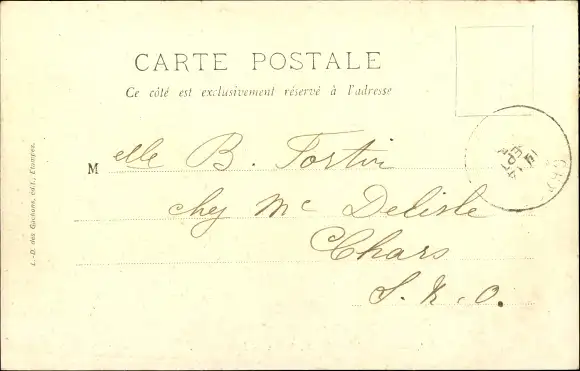 CARTE POSTALE
Ce côté est exclusivement réservé à l'adresse
Melle B. Fortin
chez Mc Delisle
Chars
S. & O.
L.-D. des Gachons, édit., Étampes.